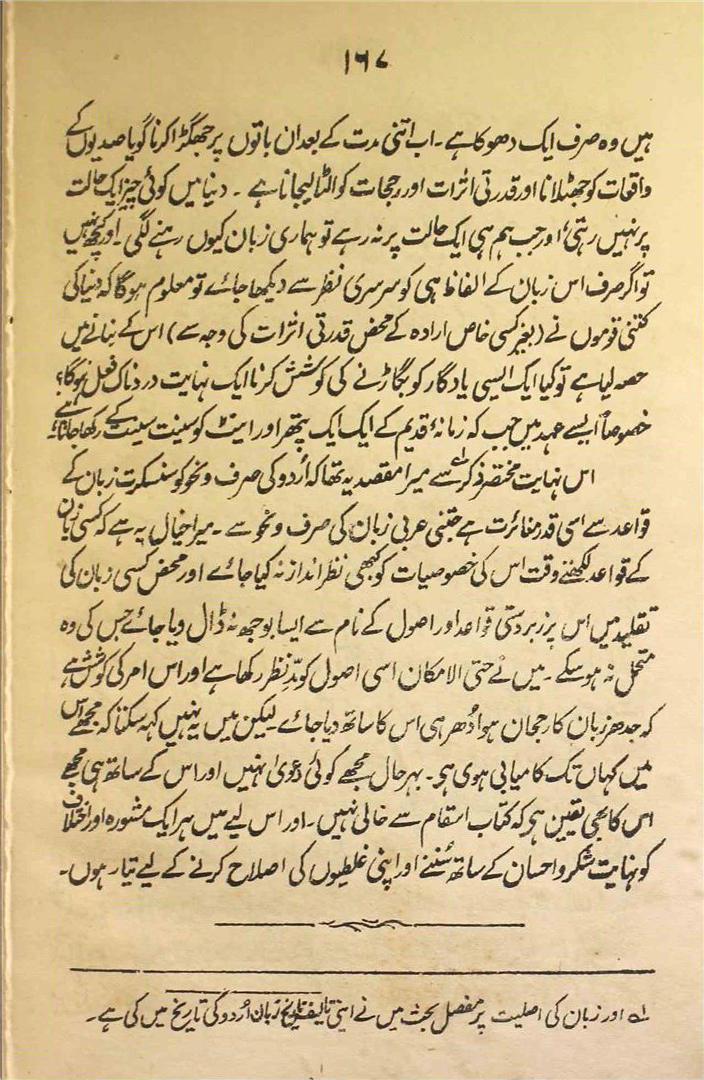 ۱۶۷
ہیں وہ صرف ایک دھوکا ہے ۔ اب اتنی مدت کے بعد ان باتوں پر جھگڑا کرنا گویا صدیوں کے
واقعات کو جھٹلانا اور قدرتی اثرات اور رجحات کو الٹا لیجانا ہے ۔ دنیا میں کوئی چیز ایک حالت
پر نہیں رہتی، اور جب ہم ہی ایک حالت پر نہ رہے تو ہماری زبان کیوں رہنے لگی ۔ اور کچھ نہیں
تو اگر صرف اس زبان کے الفاظ ہی کو سرسری نظر سے دیکھا جائے تو معلوم ہوگا کہ دنیا کی
کتنی قوموں نے (بغیر کسی خاص ارادہ کے محض قدرتی اثرات کی وجہ سے) اس کے بنانے میں
حصہ لیا ہے تو کیا ایک ایسی یادگار کو بگاڑنے کی کوشش کرنا ایک نہایت دردناک فعل نہ ہوگا؟
خصوصاً ایسے عہد میں جب کہ زمانۂ قدیم کے ایک ایک پتھر اور اینٹ کو سینت سینت کے رکھا جاتا ہے۔
اس نہایت مختصر ذکر لہ سے میرا مقصد یہ تھا کہ اُردو کی صرف و نحو کو سنسکرت زبان کے
قواعد سے اسی قدر مغائرت ہے جتنی عربی زبان کی صرف و نحو سے ۔ میرا خیال یہ ہے کہ کسی زبان
کے قواعد لکھتے وقت اس کی خصوصیات کو کبھی نظر انداز نہ کیا جائے اور محض کسی زبان کی
تقلید میں اس پر زبردستی قواعد اور اصول کے نام سے ایسا بوجھ نہ ڈال دیا جائے جس کی وہ
متحمل نہ ہو سکے ۔ میں نے حتی الامکان اسی اصول کو مدِّنظر رکھا ہے اور اس امر کی کوشش ہے
کہ جدھر زبان کا رجحان ہوا دُھر ہی اس کا ساتھ دیا جائے لیکن میں یہ نہیں کہہ سکتا کہ مجھے اس
میں کہاں تک کامیابی ہوی ہو ۔ بہرحال مجھے کوئی دعویٰ نہیں اور اس کے ساتھ ہی مجھے
اس کا بھی یقین ہو کہ کتاب اسقام سے خالی نہیں ۔ اور اس لیے میں ہر ایک مشورہ اور اختلاف
کو نہایت شکر و احسان کے ساتھ سُننے اور اپنی غلطیوں کی اصلاح کرنے کے لیے تیار ہوں ۔
لہ اور زبان کی اصلیت پر مفصل بحث میں نے اپنی تالیف تاریخ زبان اُردو کی تاریخ میں کی ہے ۔